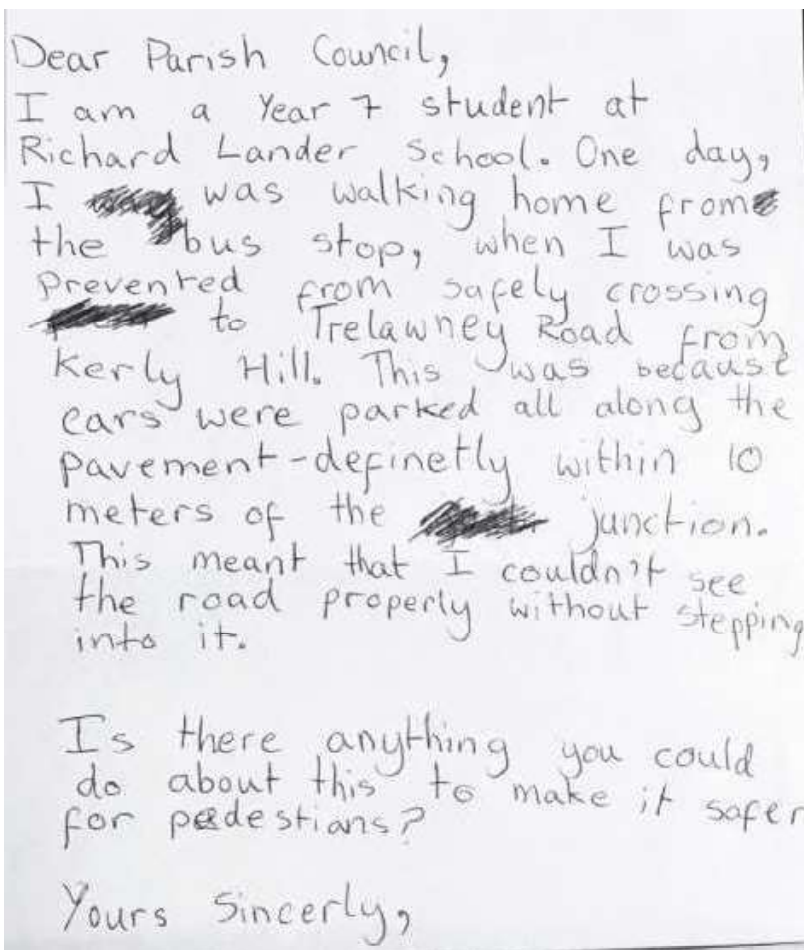 Dear Parish Council,
I am a Year 7 student at
Richard Lander School. One day,
I was walking home from
the bus stop, when I was
prevented from safely crossing
to Trelawney Road from
Kerly Hill. This was because
cars were parked all along the
pavement-definetly within 10
meters of the junction.
This meant that I couldn't see
the road properly without stepping
into it.
Is there anything you could
do about this to make it safer
for pedestians?
Yours Sincerly,